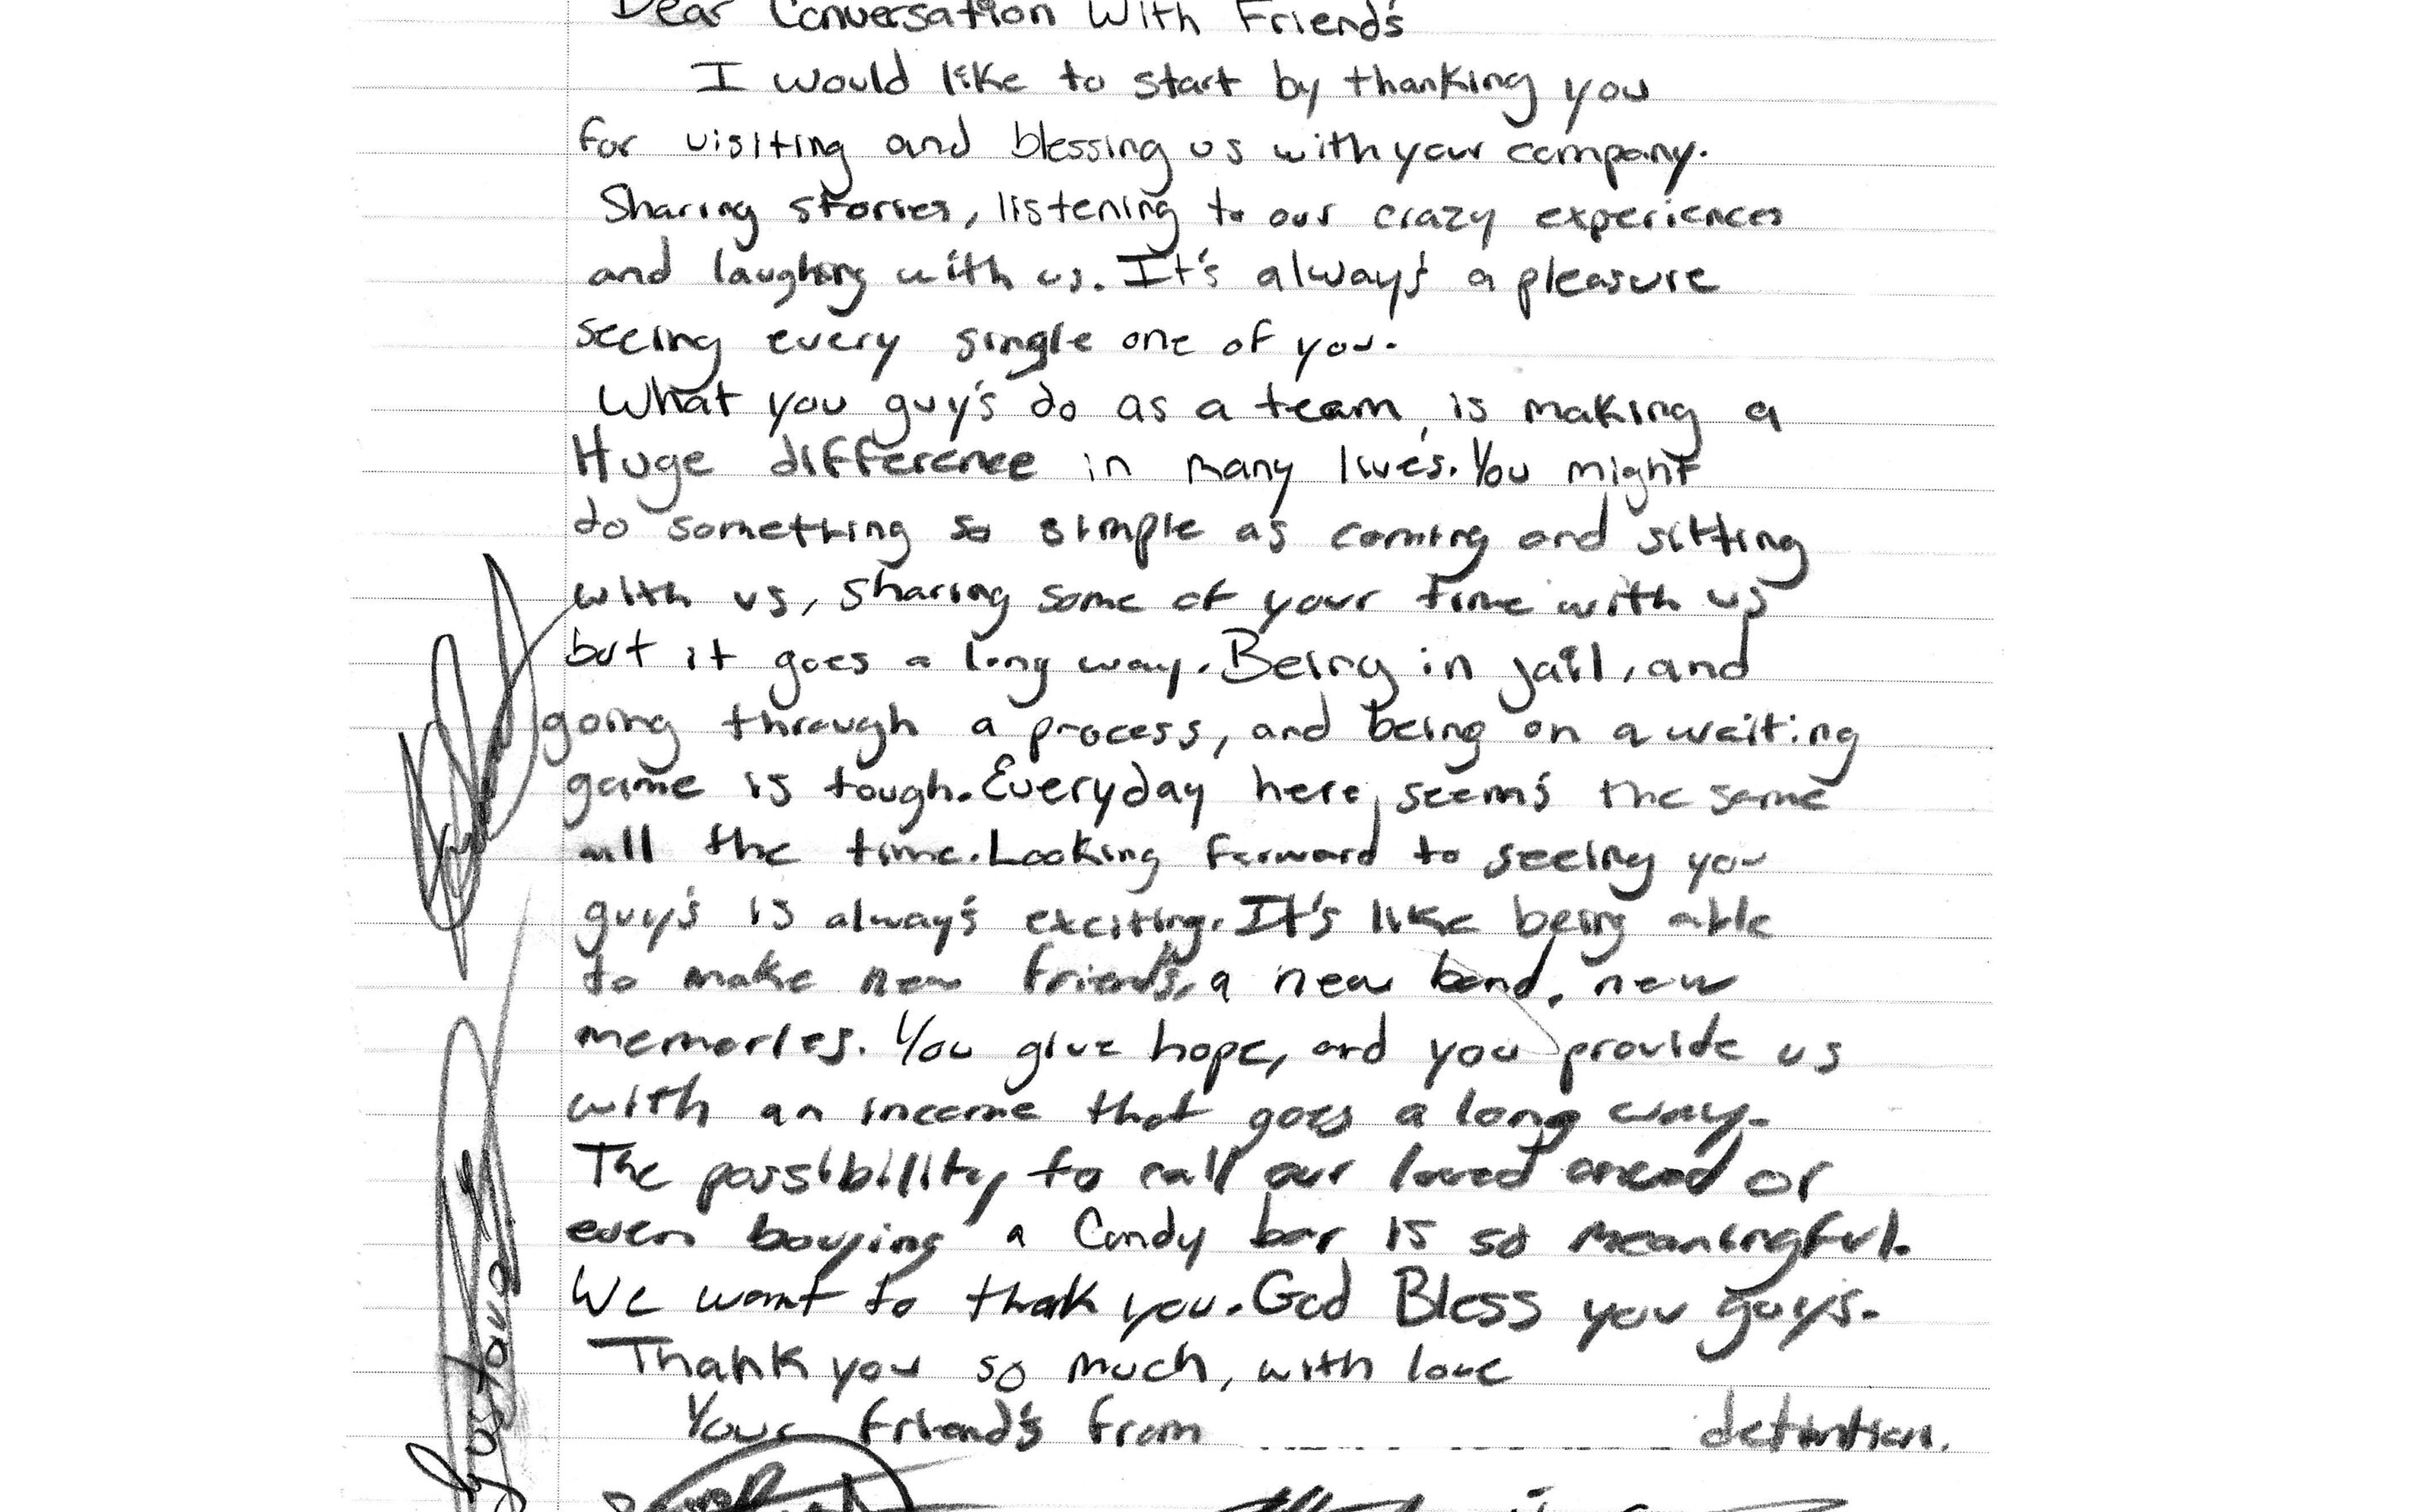 Dear Conversation With Friend's
I would like to start by thanking you
for visiting and blessing us with your company.
Sharing stories, listening to our crazy experiences
and laughing with us. It's always a pleasure
seeing every single one of you.
What you guy's do as a team, is making a
Huge difference in many live's. You might
do something so simple as coming and sitting
with us, sharing some of your time with us
but it goes a long way. Being in jail, and
going through a process, and being on a waiting
game is tough. Everyday here, seem's the same
all the time. Looking forward to seeing you
guy's is alway's exciting. It's like being able
to make new friend's, a new bond, new
memories. You give hope, and you provide us
with an income that goes a long way.
The possibility to call our loved ones or
even bouying a Candy bar is so meaningful.
We want to thank you. God Bless you guys.
Thank you so much, with love
Your friend's from detention.
Gustavo